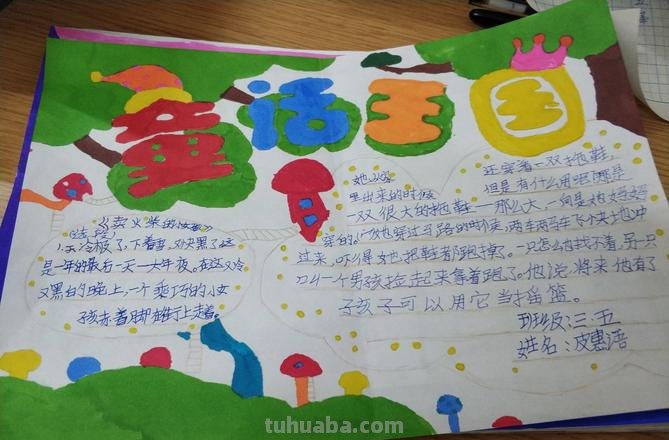 童话王国
《卖火柴的小女孩》
(选段)
天冷极了,下着雪,又快黑了。这
是一年的最后一天—大年夜。在这又冷
又黑的晚上,一个乖巧的小女
孩赤着脚在街上走着。
她从家
里出来的时候
还穿着一双拖鞋,
但是有什么用呢?那是
一双很大的拖鞋——那么大,一向是她妈妈
穿的。她穿过马路的时候,两车两马车飞快地冲
过来,吓得她把鞋都跑掉了。一只怎么也找不着,另一只
叫一个男孩捡起来拿着跑了。他说,将来他有了
孩子可以用它当摇篮。
班级:三.五
姓名:皮惠语
tuhuaba.com